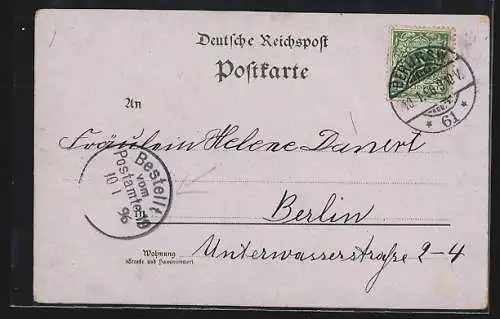 Deutsche Reichspost
Postkarte
An
Fräulein Helene Danert
Bestellt
vom
Postamte
10 1 96
in
Berlin
Wohnung
(Strasse und Hausnummer)
Unterwasserstraße 2-4
BERLIN
10.1.96
* 61 *